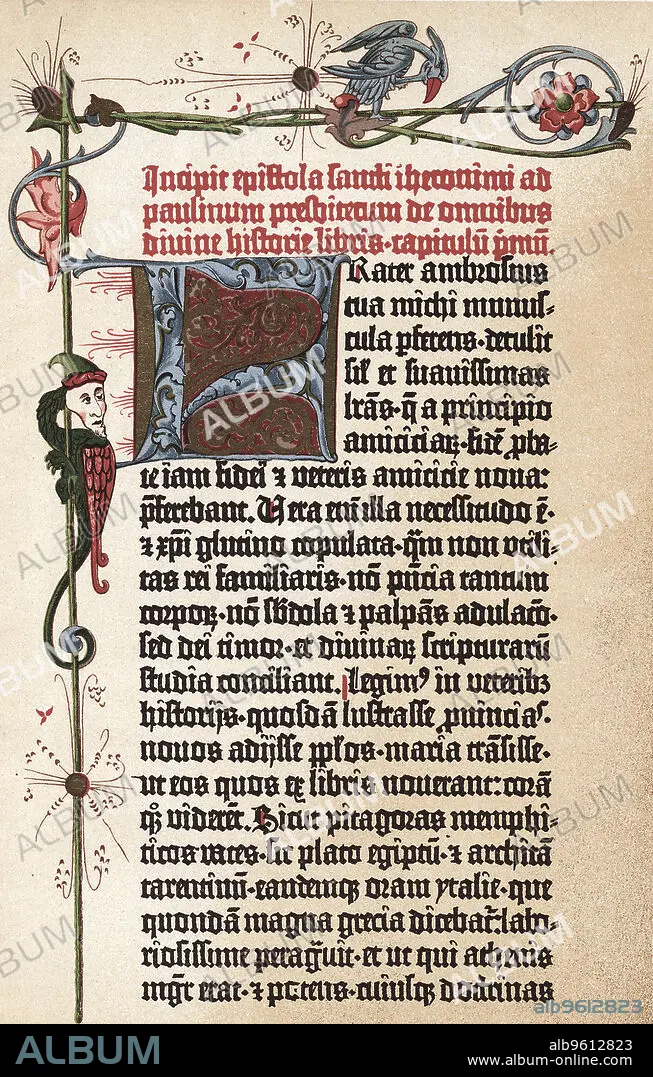 Incipit epistola sancti iheronimi ad
paulinum presbiterum de omnibus
divine historie libris. capitulū p̄mū.
FRater ambrosius
tua michi munus⸗
cula pferens. detulit
sil̄ et suavissimas
lr̄as. q̄ a principio
amiciciaꝝ. fidē pba⸗
te iam fidei ⁊ veteris amicicie nova:
pferebant. Vera em̄ illa necessitudo ē.
⁊ xp̄i glutino copulata. qm̄ non utili⸗
tas rei familiaris. nō pn̄cia tantum
corpoꝝ. nō sb̄dola ⁊ palpās adulacō.
sed dei timor. et divinaꝝ scripturarū
studia conciliant. Legimꝰ in veteribꝫ
historijs. quosdā lustrasse pvincias.
novos adijsse pplos. maria trāsisse.
ut eos quos ex libris noverant: corā
qꝫ viderēt. Sicut pitagoras memphi⸗
ticos vates. sic plato egiptū. ⁊ architā
tarentinū. eandemqꝫ oram ytalie. que
quondā magna grecia dicebat̄: labo⸗
riosissime peragͣvit. et ut qui athenis
mgr̄ erat. ⁊ potens. cuiusqꝫ doctrinas
alb9612823
ALBUM
alb9612823
www.album-online.com